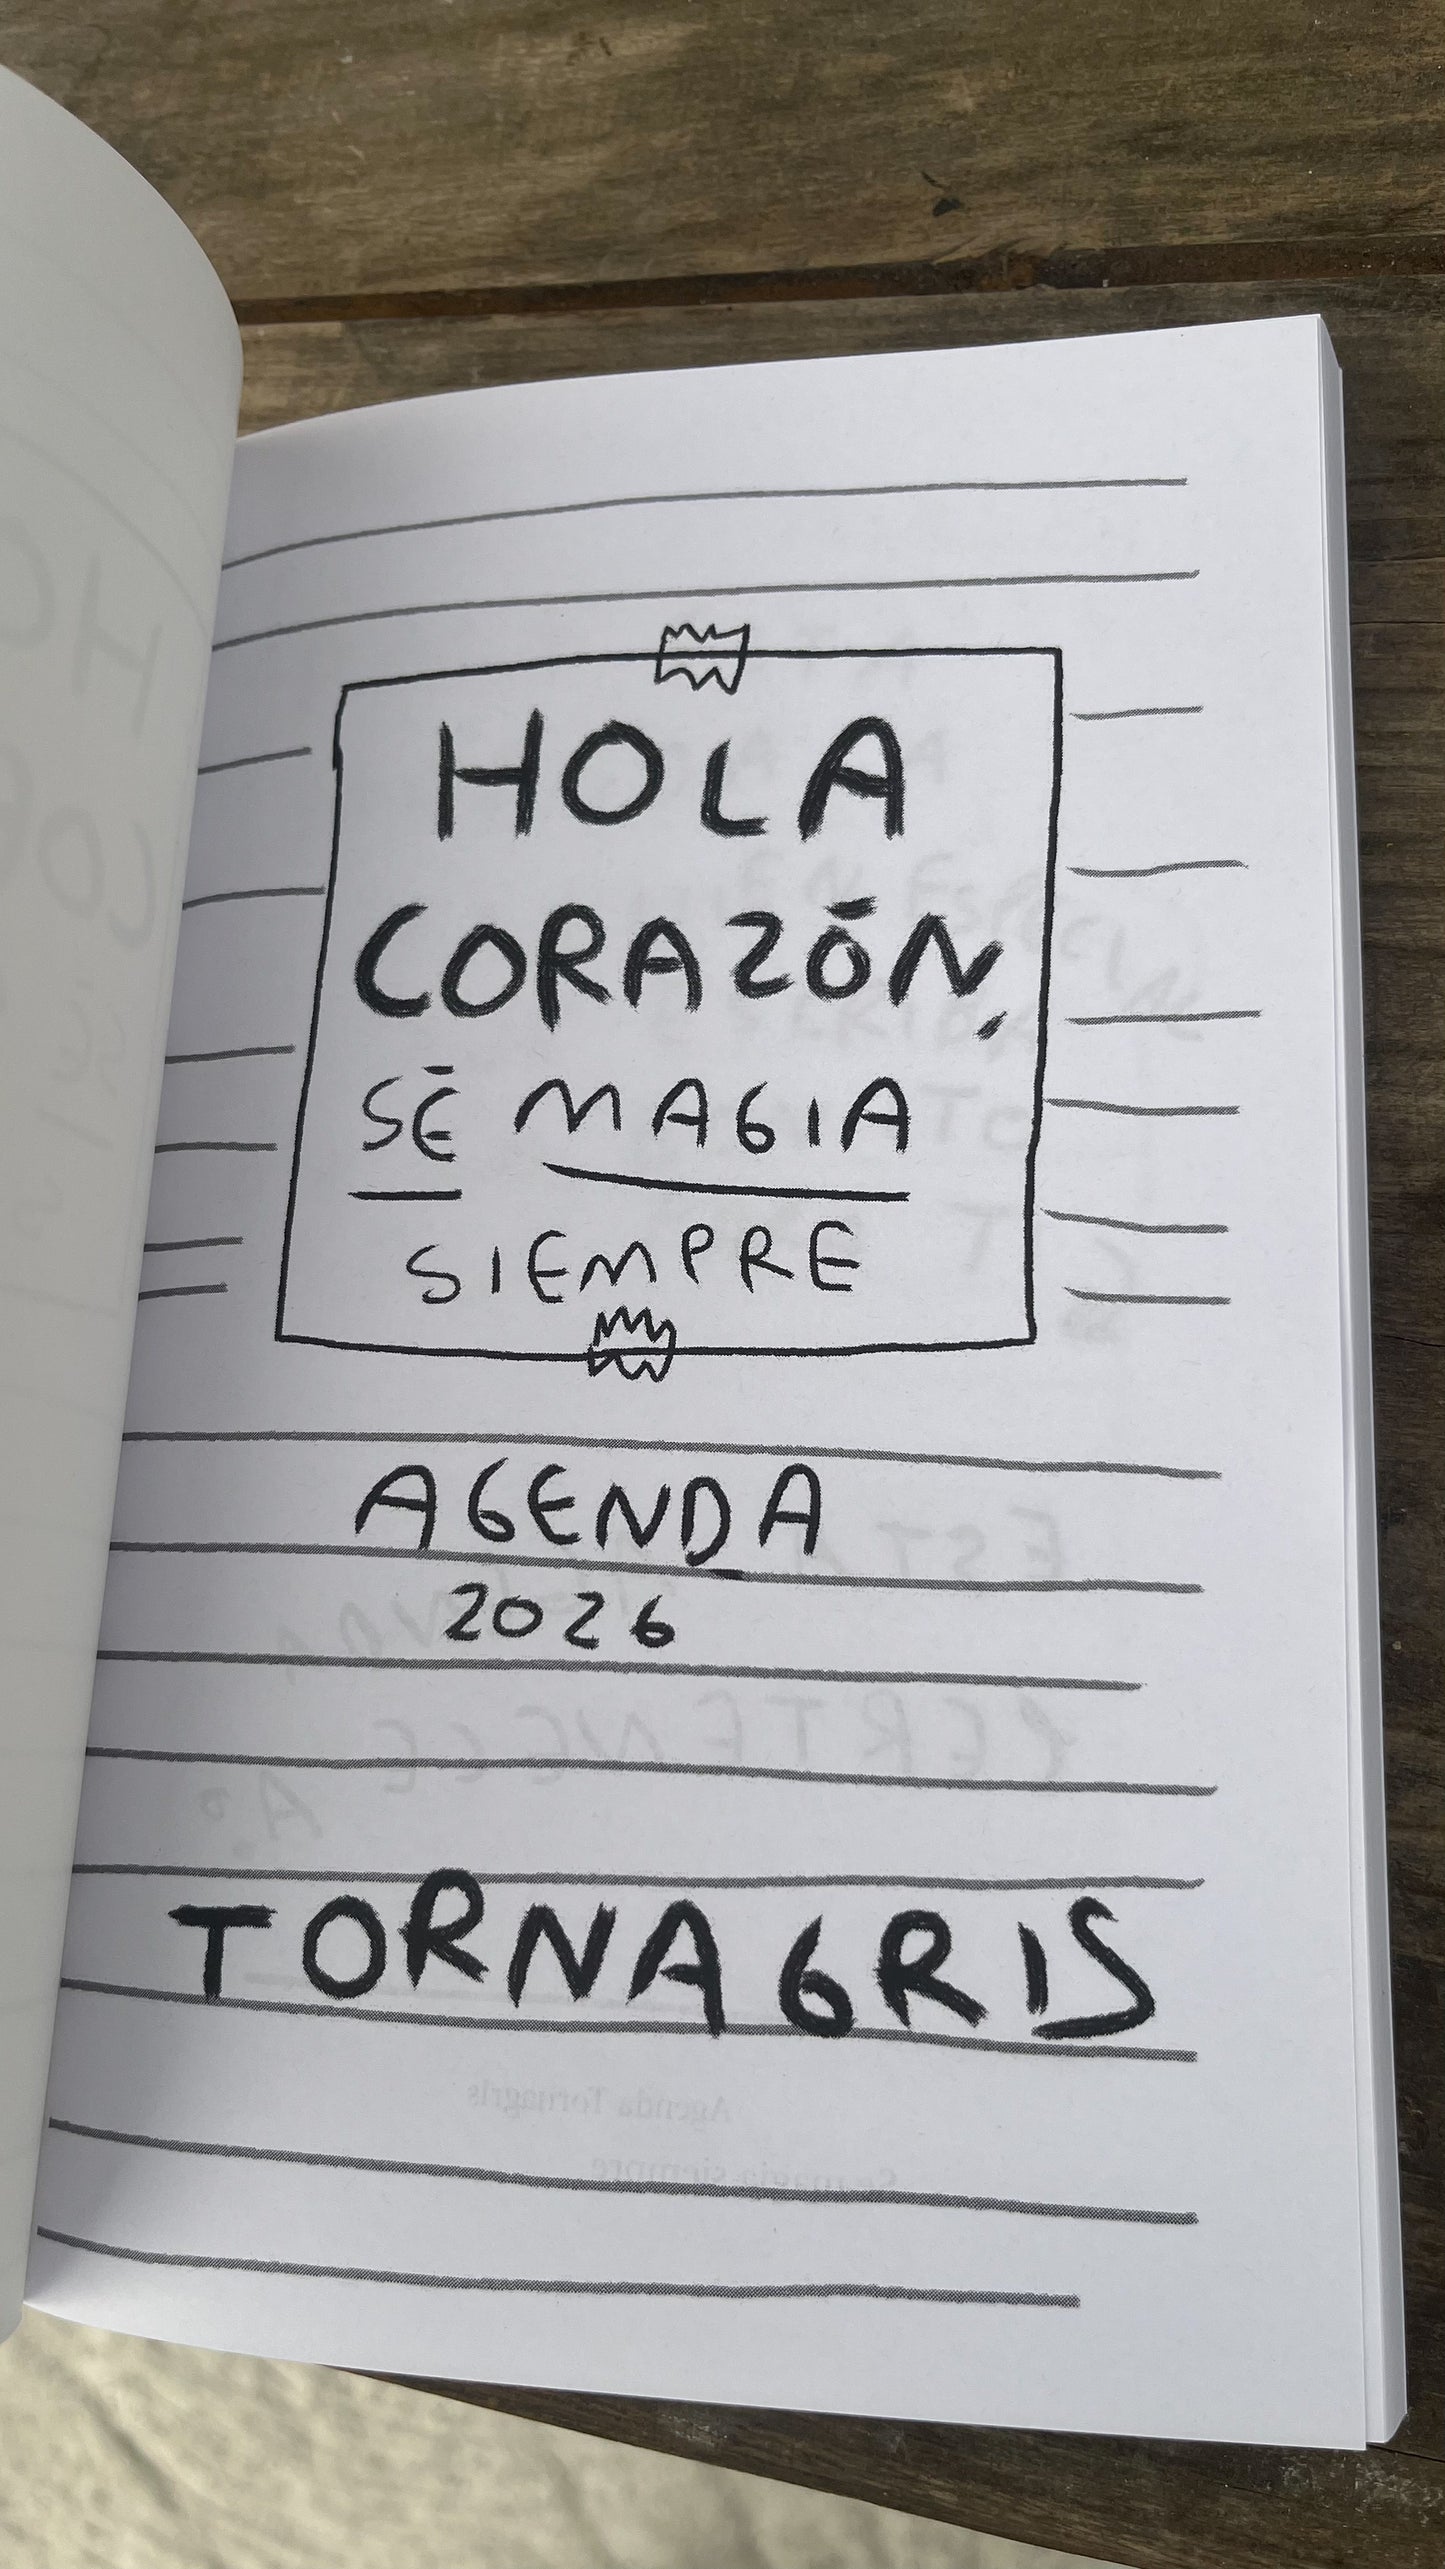 HOLA
CORAZÓN,
SÉ MAGIA
SIEMPRE
AGENDA
2026
TORNAGRIS